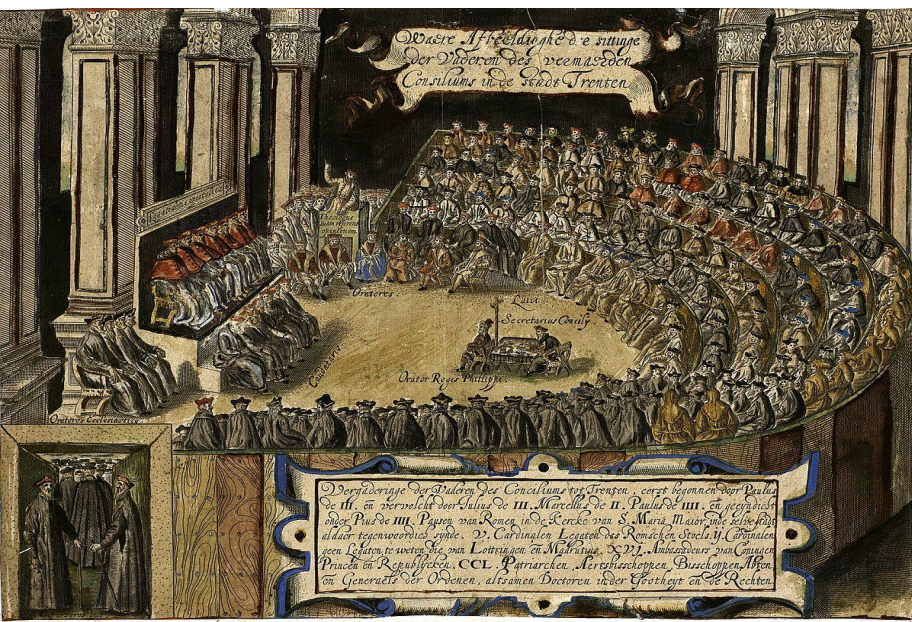 Waere Afbeeldinghe d'e sittinge
der Vaderen des vermaerden
Consiliums in de stadt Trenten
Oratores.
Laici
Secretarius Concily
Orator Regis Phillippi
Oratores Eclesiastici
Vergaderinge der Vaderen des Conciliums tot Trenten, eerst begonnen door Paulus
de III. en vervolcht door Julius de III. Marcellus de II. Paulus de IIII. en geeyndicht
onder Pius de IIII. Pausen van Romen in de Kercke van S. Maria Maior, inde selve stadt
aldaer tegenwoordich synde. V. Cardinalen Legaten des Romschen Stoels. ij. Cardinalen
geen Legaten te weten die van Lottringen en Madrutius, XVJ. Ambasadeurs van Coningen
Princen en Republycken. CCL. Patriarchen, Aertsbisschoppen, Bisschoppen, Abten
en Generaels der Ordenen, altsamen Doctoren in der Godtheyt en de Rechten.